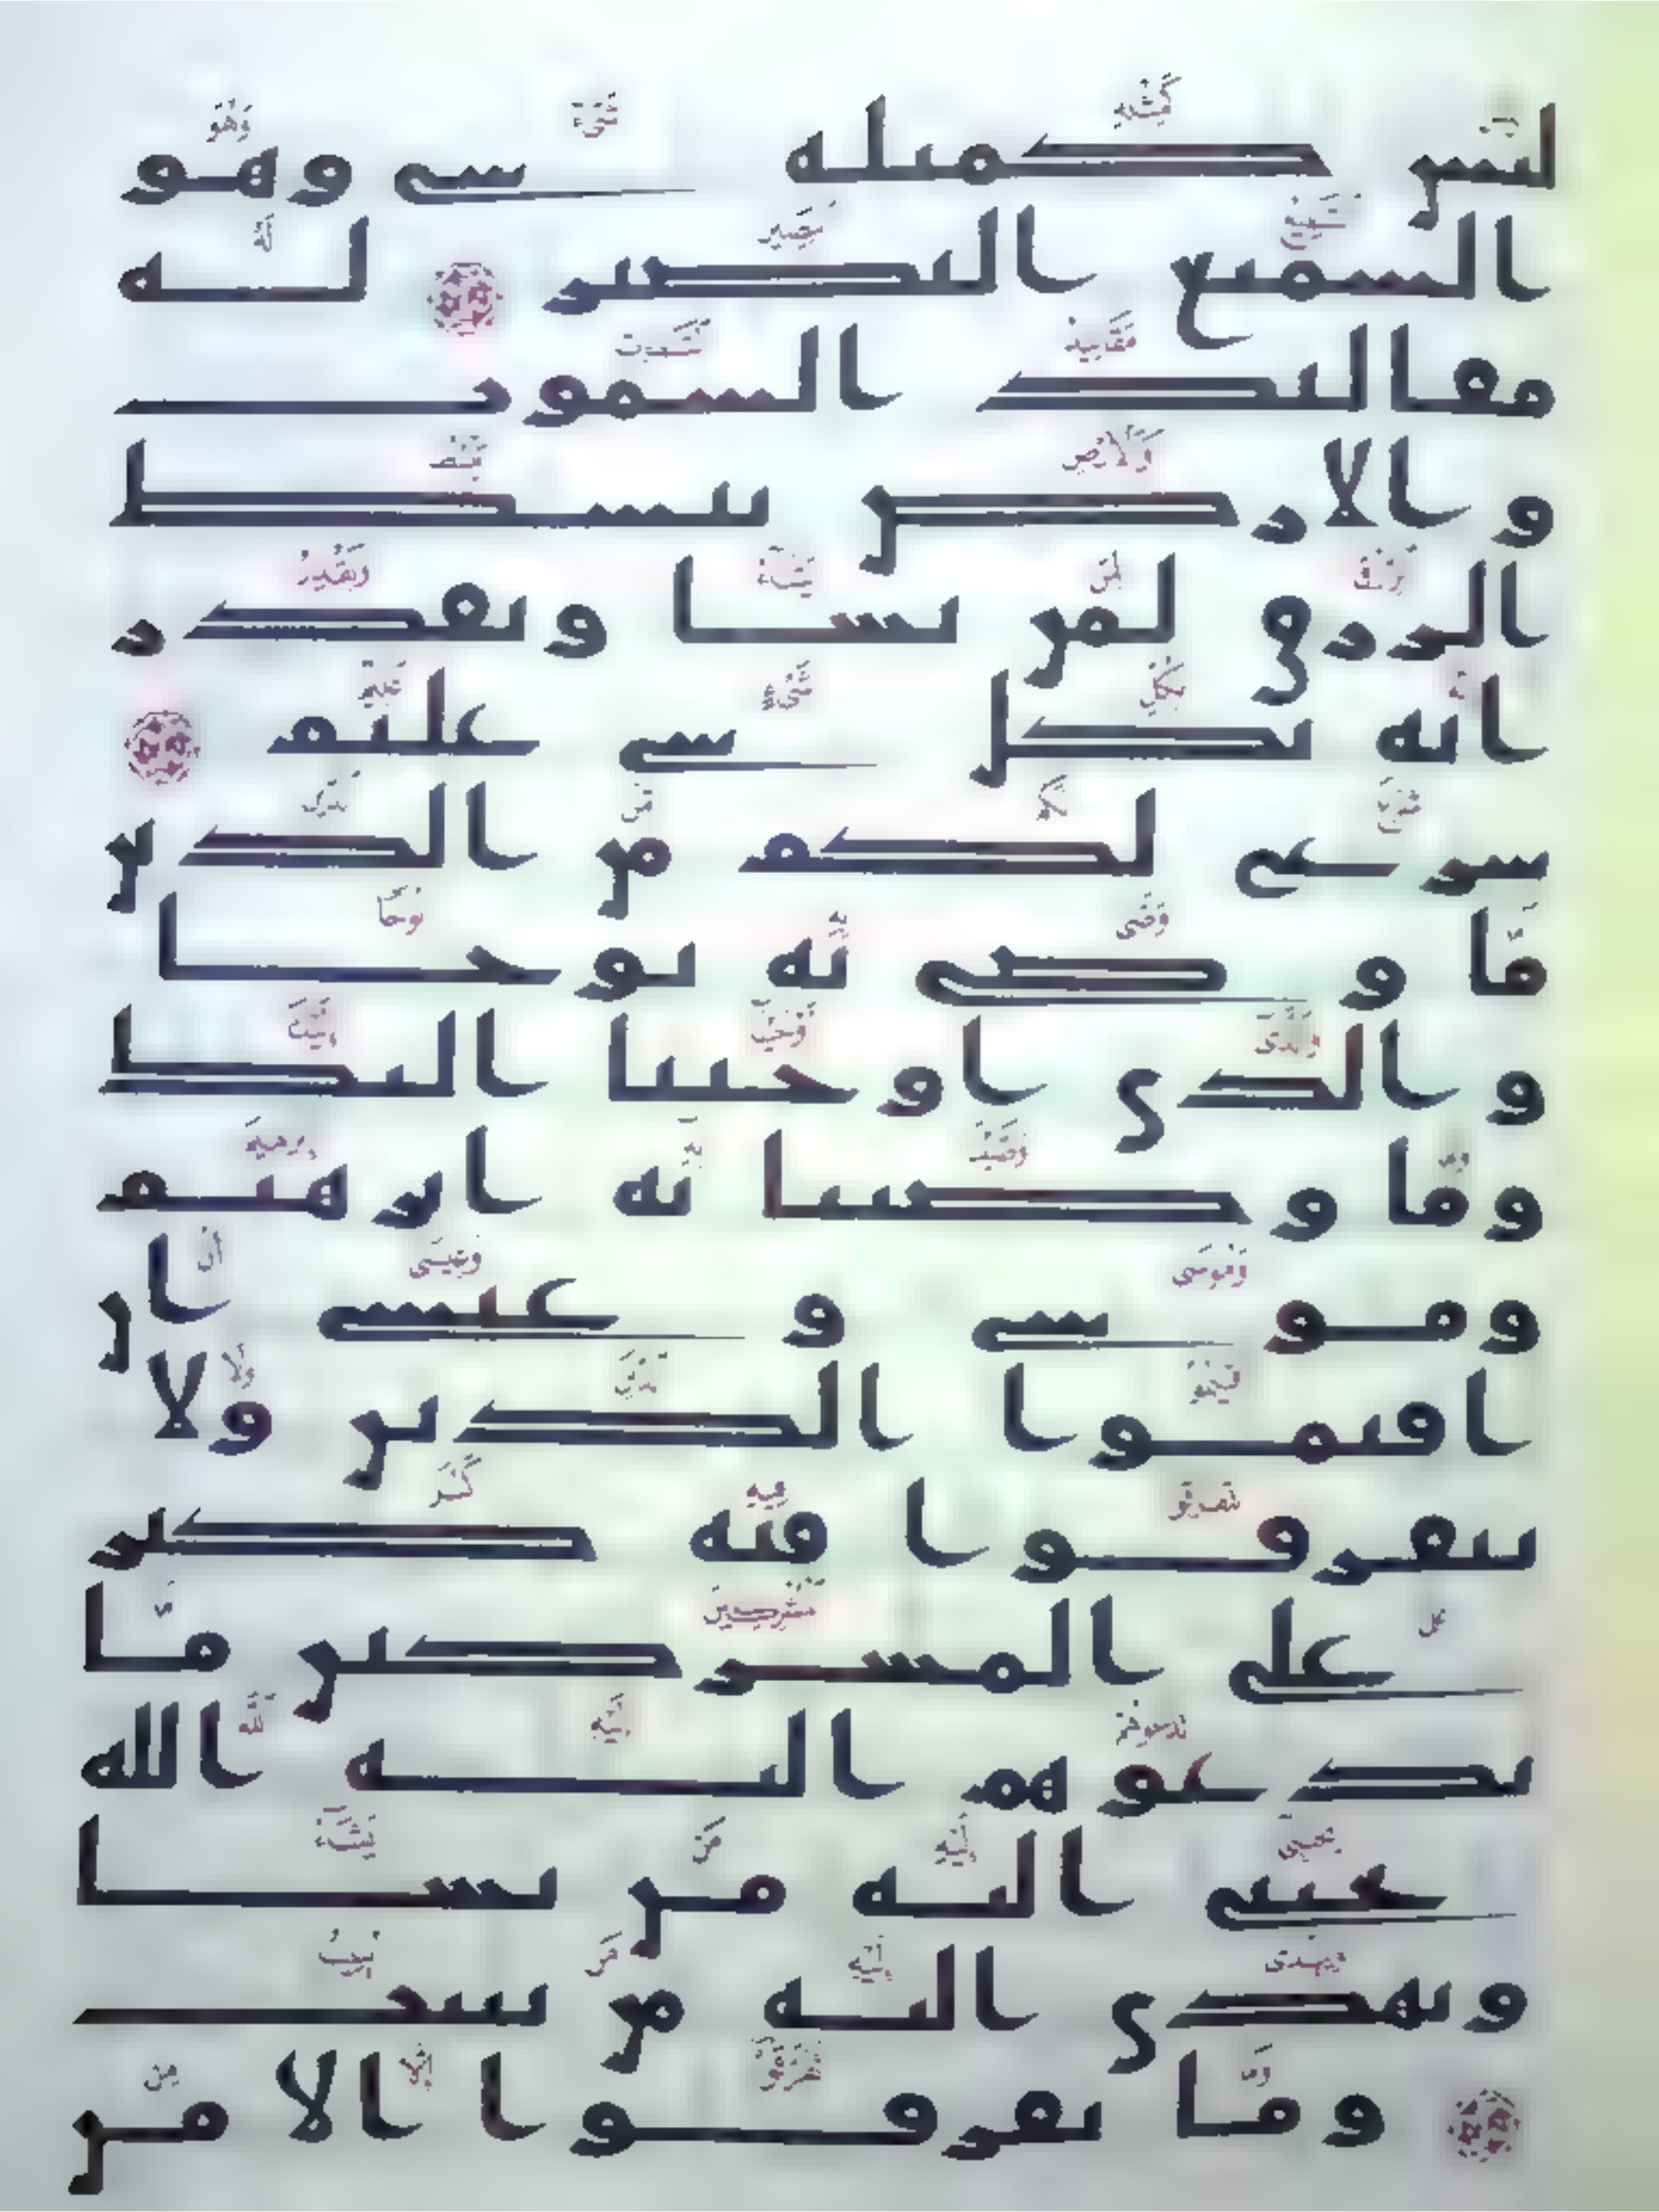 ليس كمثله شى وهو
السميع البصير له
مقاليد السموت
والارض يبسط
الرزق لمن يشا ويقدر
انه بكل شى عليم
شرع لكم من الدين
ما وصى به نوحا
والذى اوحينا اليك
وما وصينا به ابرهيم
وموسى وعيسى ان
اقيموا الدين ولا
تتفرقوا فيه كبر
على المشركين ما
تدعوهم اليه الله
يجتبى اليه من يشا
ويهدى اليه من ينيب
وما تفرقوا الا من